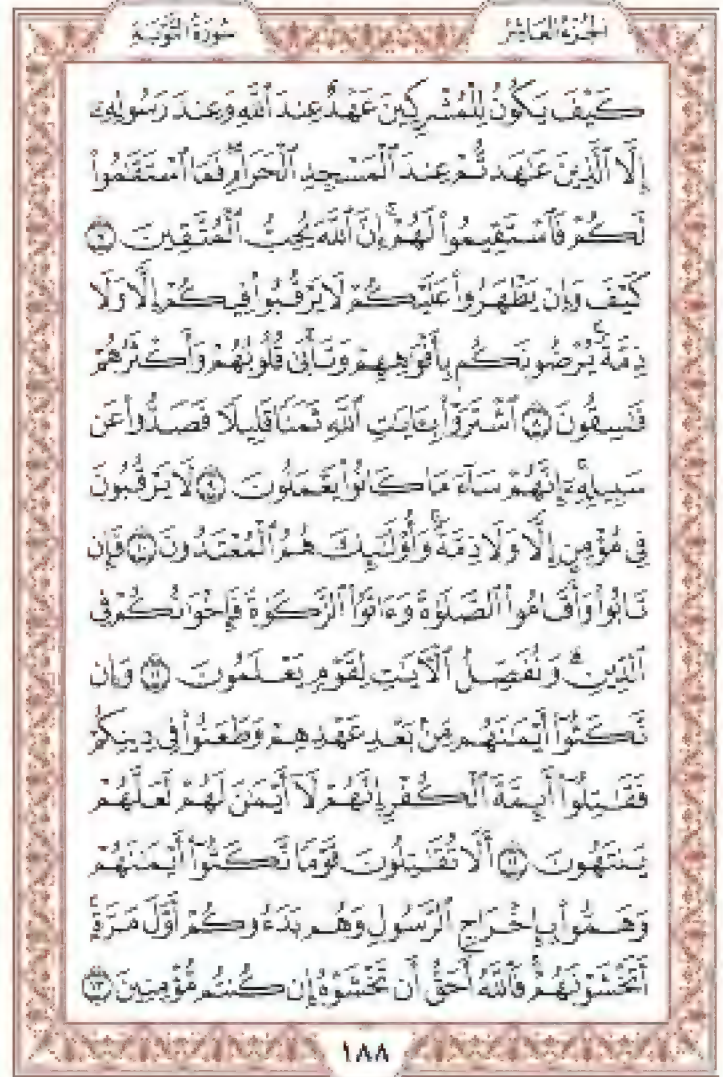 الجزء العاشر
سورة التوبة
كَيْفَ يَكُونُ لِلْمُشْرِكِينَ عَهْدٌ عِندَ ٱللَّهِ وَعِندَ رَسُولِهِۦٓ
إِلَّا ٱلَّذِينَ عَٰهَدتُّمْ عِندَ ٱلْمَسْجِدِ ٱلْحَرَامِ ۖ فَمَا ٱسْتَقَٰمُوا۟
لَكُمْ فَٱسْتَقِيمُوا۟ لَهُمْ ۚ إِنَّ ٱللَّهَ يُحِبُّ ٱلْمُتَّقِينَ ٧
كَيْفَ وَإِن يَظْهَرُوا۟ عَلَيْكُمْ لَا يَرْقُبُوا۟ فِيكُمْ إِلًّا وَلَا
ذِمَّةً ۚ يُرْضُونَكُم بِأَفْوَٰهِهِمْ وَتَأْبَىٰ قُلُوبُهُمْ وَأَكْثَرُهُمْ
فَٰسِقُونَ ٨ ٱشْتَرَوْا۟ بِـَٔايَٰتِ ٱللَّهِ ثَمَنًا قَلِيلًا فَصَدُّوا۟ عَن
سَبِيلِهِۦٓ ۚ إِنَّهُمْ سَآءَ مَا كَانُوا۟ يَعْمَلُونَ ٩ لَا يَرْقُبُونَ
فِى مُؤْمِنٍ إِلًّا وَلَا ذِمَّةً ۚ وَأُو۟لَٰٓئِكَ هُمُ ٱلْمُعْتَدُونَ ١٠ فَإِن
تَابُوا۟ وَأَقَامُوا۟ ٱلصَّلَوٰةَ وَءَاتَوُا۟ ٱلزَّكَوٰةَ فَإِخْوَٰنُكُمْ فِى
ٱلدِّينِ ۗ وَنُفَصِّلُ ٱلْـَٔايَٰتِ لِقَوْمٍ يَعْلَمُونَ ١١ وَإِن
نَّكَثُوٓا۟ أَيْمَٰنَهُم مِّنۢ بَعْدِ عَهْدِهِمْ وَطَعَنُوا۟ فِى دِينِكُمْ
فَقَٰتِلُوٓا۟ أَئِمَّةَ ٱلْكُفْرِ ۙ إِنَّهُمْ لَآ أَيْمَٰنَ لَهُمْ لَعَلَّهُمْ
يَنتَهُونَ ١٢ أَلَا تُقَٰتِلُونَ قَوْمًا نَّكَثُوٓا۟ أَيْمَٰنَهُمْ
وَهَمُّوا۟ بِإِخْرَاجِ ٱلرَّسُولِ وَهُم بَدَءُوكُمْ أَوَّلَ مَرَّةٍ ۚ
أَتَخْشَوْنَهُمْ ۚ فَٱللَّهُ أَحَقُّ أَن تَخْشَوْهُ إِن كُنتُم مُّؤْمِنِينَ ١٣
١٨٨